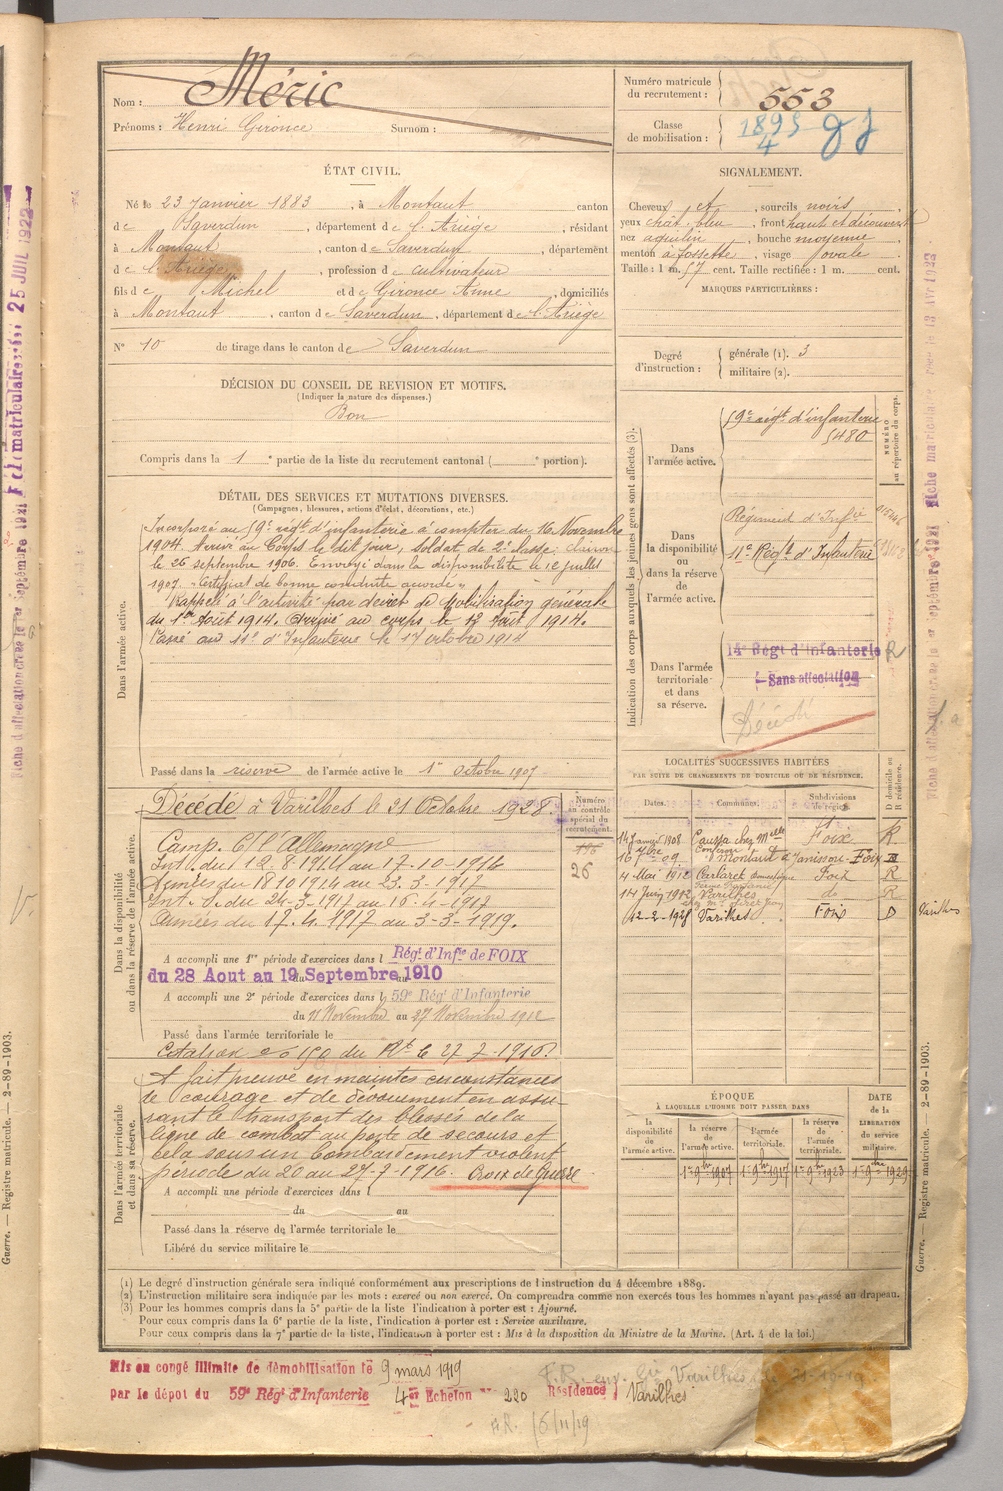 Nom : Méric
Prénoms : Henri Gironce Surnom :
Numéro matricule du recrutement : 553
Classe de mobilisation : 1895
4
ÉTAT CIVIL.
Né le 23 Janvier 1883, à Montaut canton
de Saverdun, département de l'Ariège, résidant
à Montaut, canton de Saverdun, département
de l'Ariège, profession de cultivateur
fils de Michel et de Gironce Anne, domiciliés
à Montaut, canton de Saverdun, département de l'Ariège
N° 10 de tirage dans le canton de Saverdun
SIGNALEMENT.
Cheveux et, sourcils noirs
yeux chât. bleu, front haut et découvert
nez aquilin, bouche moyenne
menton à fossette, visage ovale
Taille : 1 m. 57 cent. Taille rectifiée : 1 m. cent.
MARQUES PARTICULIÈRES :
Degré d'instruction : générale (1). 3
militaire (2).
DÉCISION DU CONSEIL DE REVISION ET MOTIFS.
(Indiquer la nature des dispenses.)
Bon
Compris dans la 1e partie de la liste du recrutement cantonal ( e portion).
DÉTAIL DES SERVICES ET MUTATIONS DIVERSES.
(Campagnes, blessures, actions d'éclat, décorations, etc.)
Dans l'armée active.
Incorporé au 59e régt d'infanterie à compter du 16 Novembre
1904. Arrivé au Corps le dit jour, soldat de 2e classe.
le 26 septembre 1906. Envoyé dans la disponibilité le 12 juillet
1907. "Certificat de bonne conduite accordé"
Rappelé à l'activité par décret de Mobilisation générale
du 1er août 1914. Arrivé au corps le 12 Août 1914.
Passé au 11e d'Infanterie le 17 octobre 1914
Passé dans la réserve de l'armée active le 1er Octobre 1907
Indication des corps auxquels les jeunes gens sont affectés (3).
NUMÉRO au répertoire du corps.
Dans l'armée active.
59e régt d'infanterie
5480
Dans la disponibilité ou dans la réserve de l'armée active.
Régiment d'Infie
11e Régt d'Infanterie
Dans l'armée territoriale et dans sa réserve.
14e Régt d'Infanterie R
Sans affectation
Décédé
Dans la disponibilité ou dans la réserve de l'armée active.
Numéro au contrôle spécial du recrutement.
26
Décédé à Varilhes le 21 Octobre 1928.
Camp. C/ l'Allemagne
Int. du 12-8-1914 au 17-10-1914
Armées du 18 10 1914 au 23-3-1917
Int. du 24-3-1917 au 16-4-1917
Armées du 17.4.1917 au 3-3-1919.
A accompli une 1re période d'exercices dans l Régt d'Infie de FOIX
du 28 Aout au 19 Septembre 1910
A accompli une 2e période d'exercices dans l 59e Régt d'Infanterie
du 11 Novembre au 27 Novembre 1912
Passé dans l'armée territoriale le
Citation du Rt le 27-7-1916.
Dans l'armée territoriale et dans sa réserve.
A fait preuve en maintes circonstances
de courage et de dévouement en assu-
rant le transport des blessés de la
ligne de combat au poste de secours et
cela sous un bombardement violent
période du 20 au 27-7-1916. Croix de Guerre
A accompli une période d'exercices dans l
du au
Passé dans la réserve de l'armée territoriale le
Libéré du service militaire le
LOCALITÉS SUCCESSIVES HABITÉES
PAR SUITE DE CHANGEMENTS DE DOMICILE OU DE RÉSIDENCE.
Dates. Communes. Subdivisions de région. D domicile ou R résidence.
14 Janvier 1908 Foix R
Montaut Foix
4 Mai 1912 Carlaret Foix R
14 Juin 1912 Varilhes do R
12-2-1928 Varilhes Foix D Varilhes
ÉPOQUE
À LAQUELLE L'HOMME DOIT PASSER DANS
la disponibilité de l'armée active. la réserve de l'armée active. l'armée territoriale. la réserve de l'armée territoriale. DATE de la LIBÉRATION du service militaire.
1er 9bre 1907 1er 9bre 1917 1er 9bre 1923 1er 9bre 1929
(1) Le degré d'instruction générale sera indiqué conformément aux prescriptions de l'instruction du 4 décembre 1889.
(2) L'instruction militaire sera indiquée par les mots : exercé ou non exercé. On comprendra comme non exercés tous les hommes n'ayant pas passé au drapeau.
(3) Pour les hommes compris dans la 5e partie de la liste l'indication à porter est : Ajourné.
Pour ceux compris dans la 6e partie de la liste, l'indication à porter est : Service auxiliaire.
Pour ceux compris dans la 7e partie de la liste, l'indication à porter est : Mis à la disposition du Ministre de la Marine. (Art. 4 de la loi.)
Mis en congé illimité de démobilisation le 9 mars 1919
par le dépot du 59e Régt d'Infanterie 4er Echelon n° 220 Résidence Varilhes
Guerre. — Registre matricule. — 2-89-1903.
Guerre. — Registre matricule. — 2-89-1903.